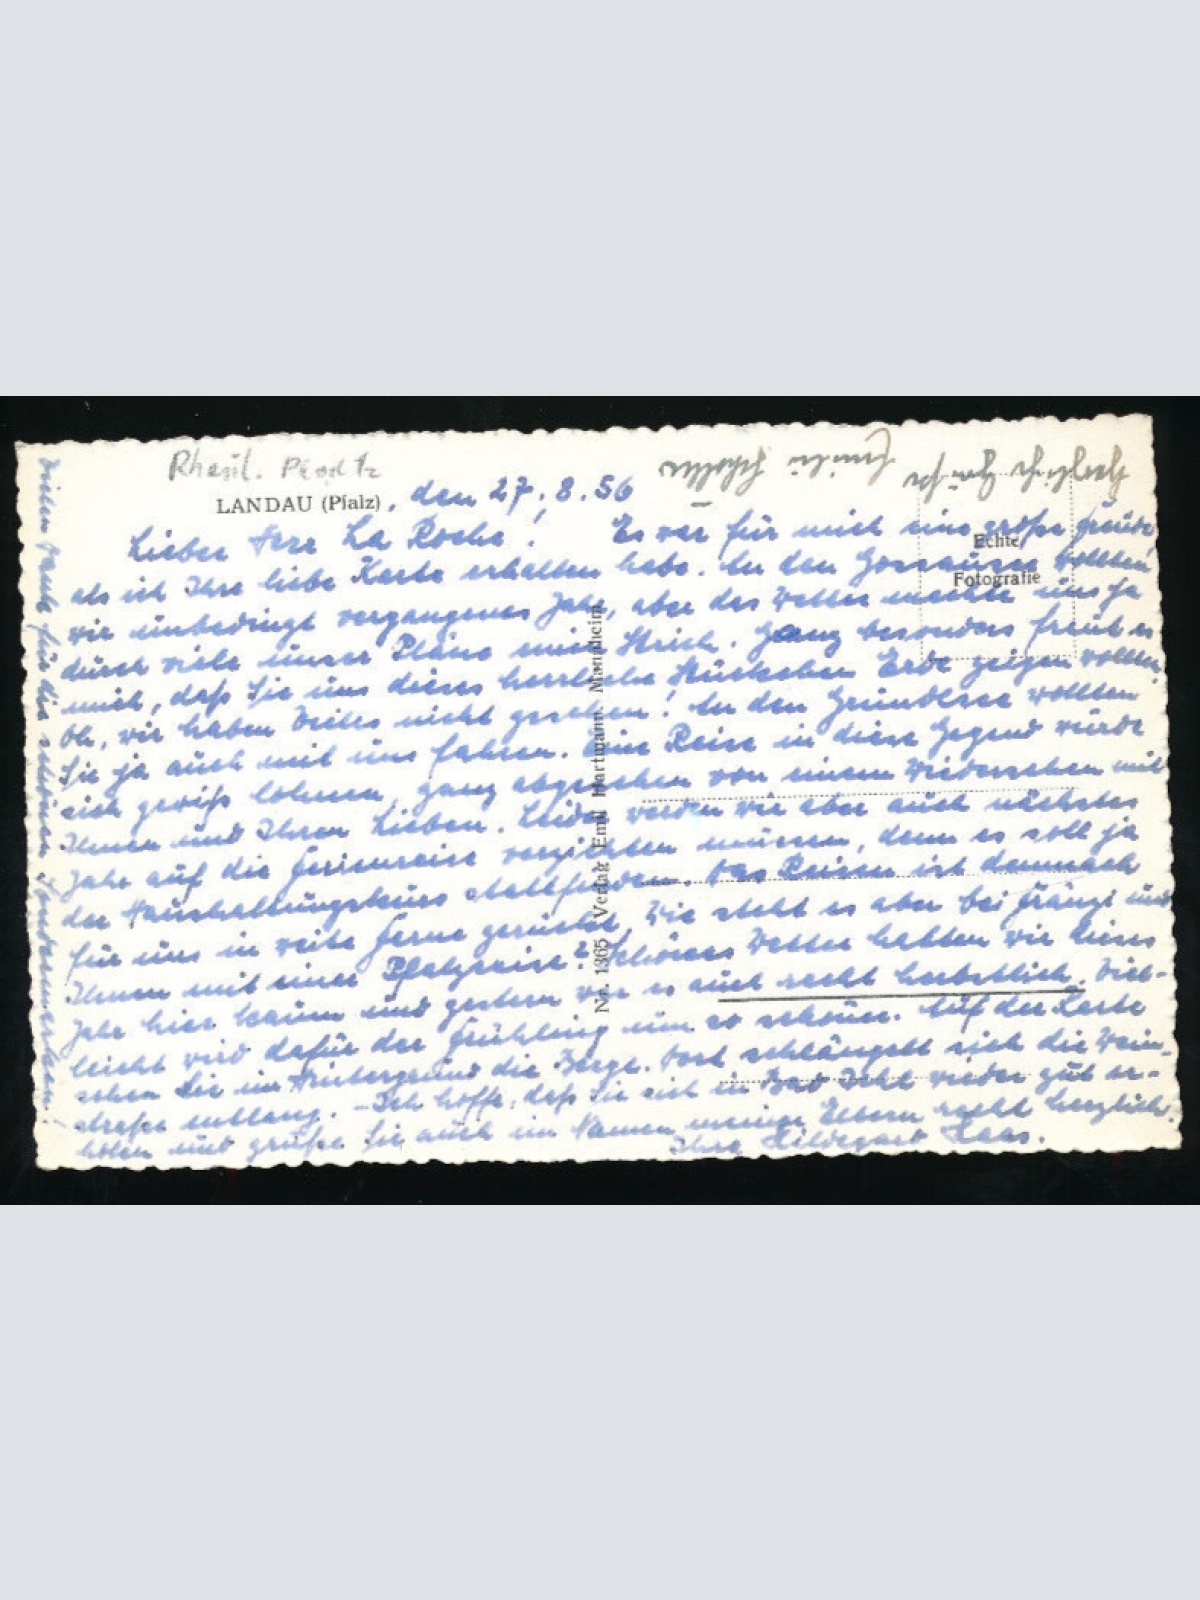 Rheinl.
LANDAU (Pfalz), den 27.8.56
Echte
Fotografie
Lieber Herr La Roche! Es war für mich eine große Freude,
als ich Ihre liebe Karte erhalten habe. An den Gosausee wollten
wir unbedingt vergangenes Jahr, aber das Wetter machte uns ja
durch viele unser Pläne einen Strich. Ganz besonders freut es
mich, daß Sie uns dieses herrliche Stückchen Erde zeigen wollten.
Oh, wir haben Vieles nicht gesehen! An den Grundlsee wollten
Sie ja auch mit uns fahren. Eine Reise in diese Gegend würde
sich gewiß lohnen, ganz abgesehen von einem Wiedersehen mit
Ihnen und Ihren Lieben. Leider werden wir aber auch nächstes
Jahr auf die Ferienreise verzichten müssen, denn es soll ja
der Haushaltungskurs stattfinden. Das Reisen ist demnach
für uns in weite Ferne gerückt. Wie steht es aber bei Fränzi und
Ihnen mit einer Pfalzreise? Schönes Wetter hatten wir dieses
Jahr hier kaum und gestern war es auch recht herbstlich. Viel-
leicht wird dafür der Frühling um so schöner. Auf der Karte
sehen Sie im Hintergrund die Berge. Dort schlängelt sich die Wein-
straße entlang. - Ich hoffe, daß Sie sich in Bad Ischl wieder gut er-
holen und grüße Sie auch im Namen meiner Eltern recht herzlich.
Ihre Hildegard Haas.
Vielen Dank für die schönen
Nr. 1365 Verlag Emil Hartmann, Mannheim